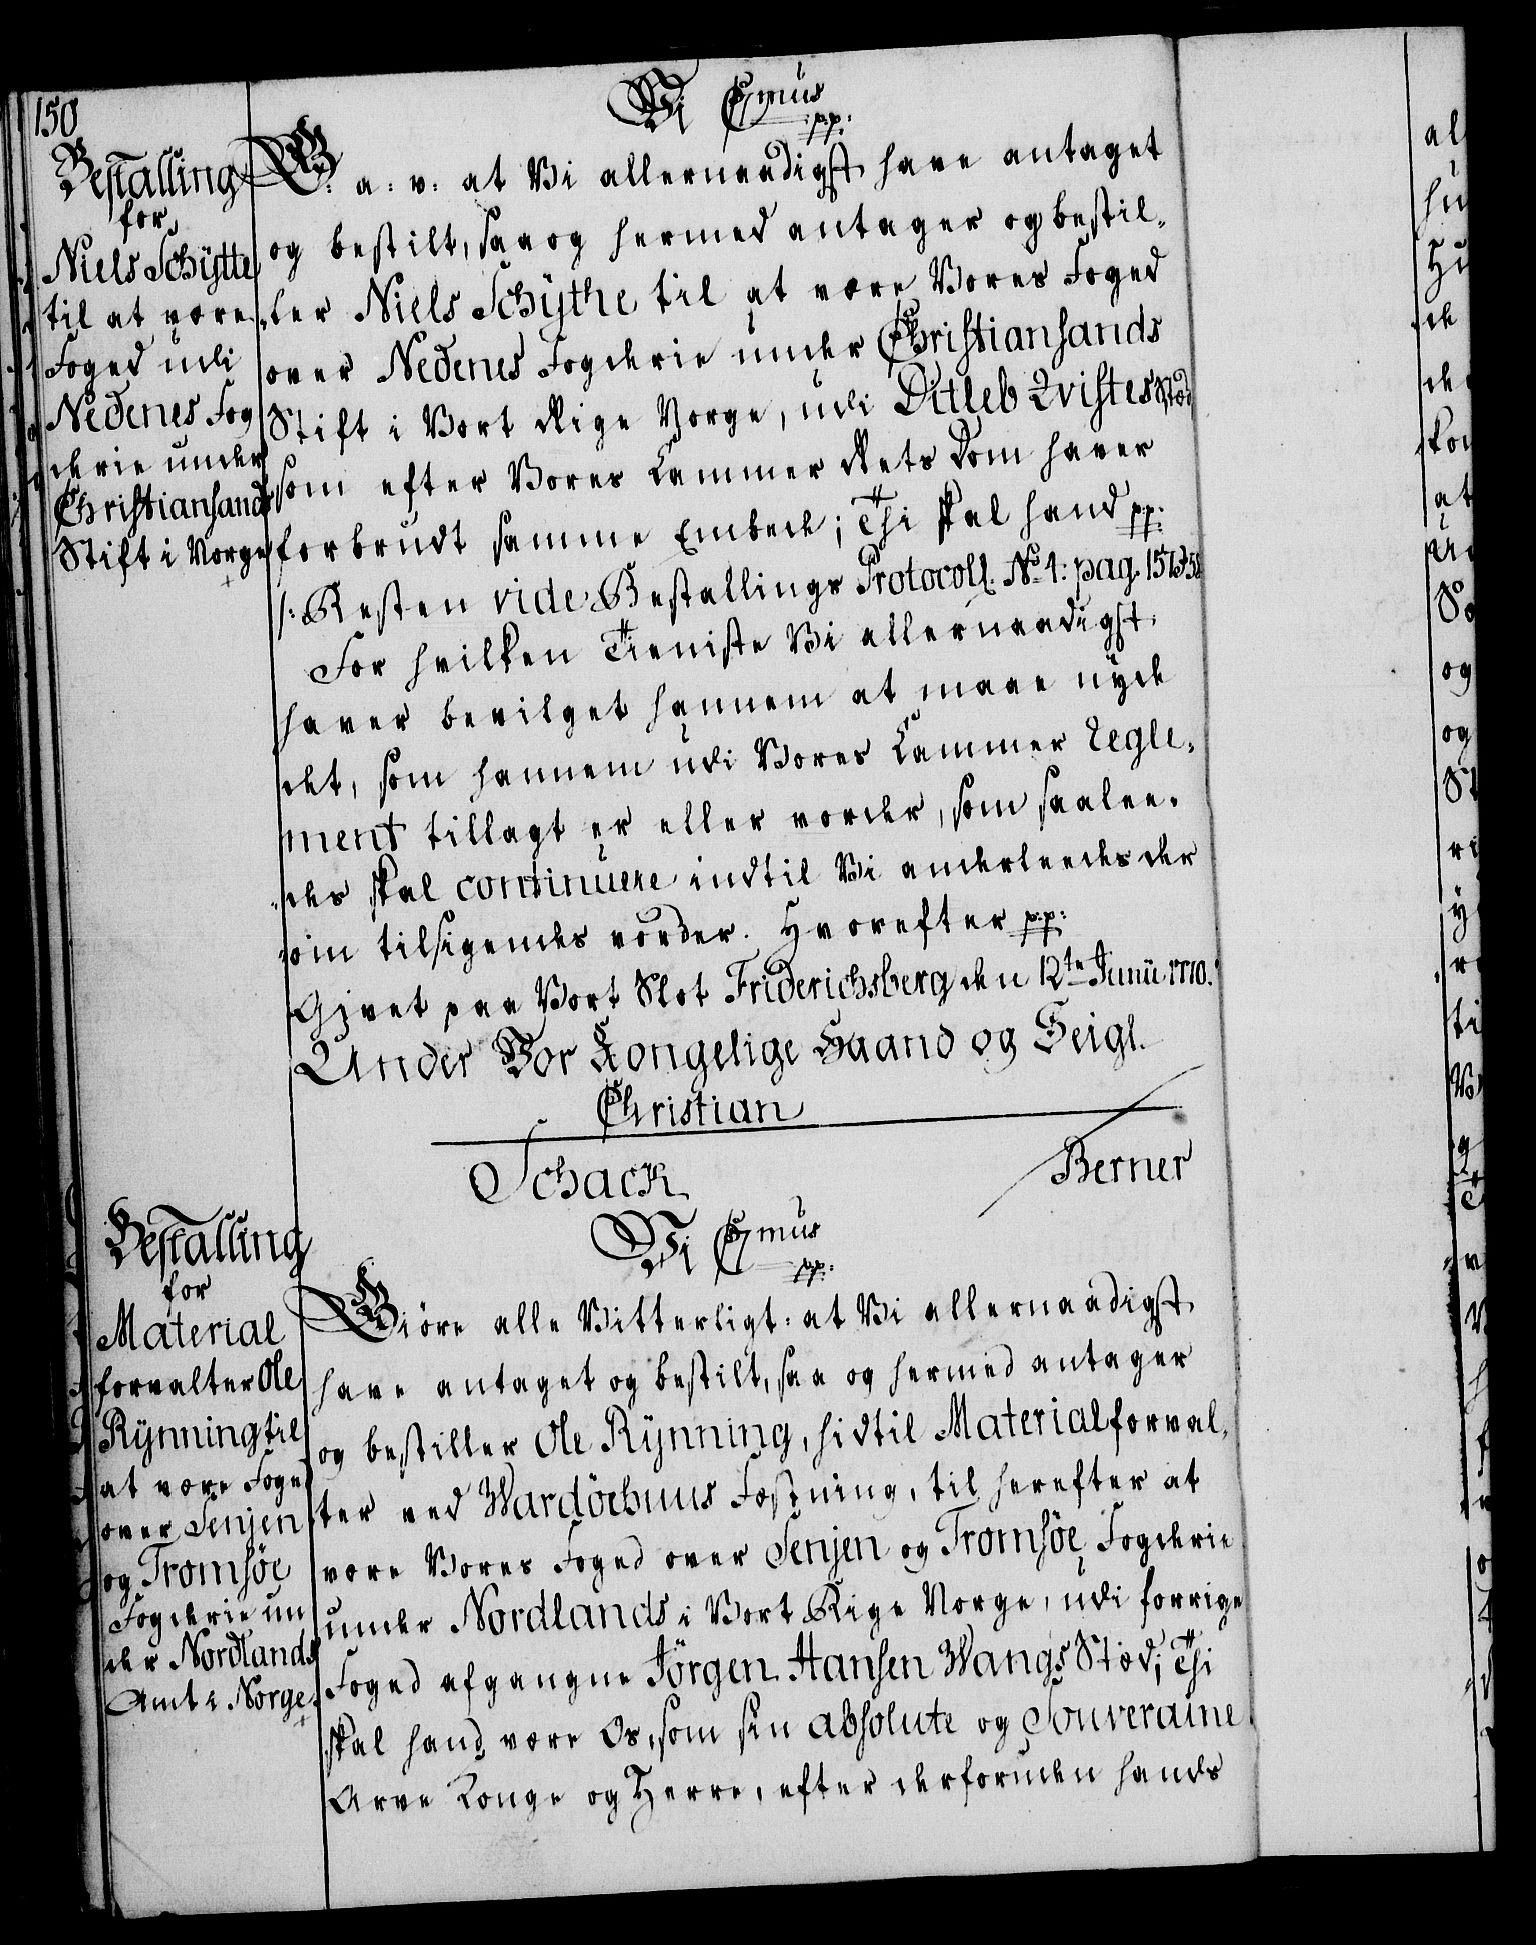 150
Bestalling
for
Niels Schÿtte
til at være
Foged udi
Nedenes Fog
derie under
Christiansands
Stift i Norge
Vi C7mus
pp:
G: a: v: at Vi allernaadigst have antaget
og bestilt, saa og hermed antager og bestil-
ler Niels Schÿthe til at være Vores Foged
over Nedenes Fogderie under Christiansands
Stift i Vort Rige Norge, udi Ditleb Qvistes Stæd
som efter Vores Cammer Rets Dom haver
forbrudt samme Embede; Thi skal hand pp:
/: Resten vide Bestallings Protocoll. No 1: pag. 157
For hvilken Tieniste Vi allernaadigst
haver bevilget hannem at maae nÿde
det, som hannem udi Vores Cammer Regle-
ment tillagt er eller vorder, som saalee-
des skal continuere indtil Vi anderleedes der
om tilsigendes vorder. Hvorefter pp:
Givet paa Vort Slot Friderichsberg den 12te Junii 1770.
Under Vor Kongelige Haand og Seigl.
Christian
Schack
Berner
Bestalling
for
Material
forvalter Ole
Rÿnning til
at være Foged
over Senjen
og Tromsöe
Fogderie un
der Nordlands
Amt i Norge.
Vi C7mus
pp:
Giöre alle Vitterligt: at Vi allernaadigst
have antaget og bestilt, saa og hermed antager
og bestiller Ole Rÿnning, hidtil Materialforval-
ter ved Wardöehuus Fæstning, til herefter at
være Vores Foged over Senjen og Tromsöe Fogderie
under Nordlands i Vort Rige Norge, udi forrige
Foged afgangne Jörgen Hansen Wangs Stæd; Thi
skal hand være Os, som sin absolute og Souveraine
Arve Konge og Herre, efter derforuden hands